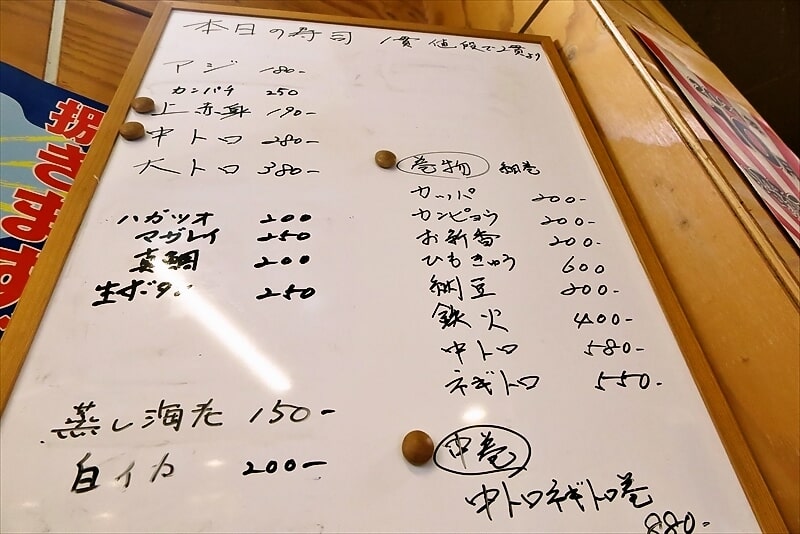 本日の寿司 1貫値段で2貫より
アジ 180-
カンパチ 250
上赤身 190-
中トロ 280-
大トロ 380-
ハガツオ 200
マガレイ 250
真鯛 200
生ゲタン 250
蒸し海老 150-
白イカ 200-
巻物 細巻
カッパ 200-
カンピョウ 200-
お新香 200-
ひもきゅう 600
納豆 200-
鉄火 400-
中トロ 580-
ネギトロ 550-
中巻
中トロネギトロ巻
880-